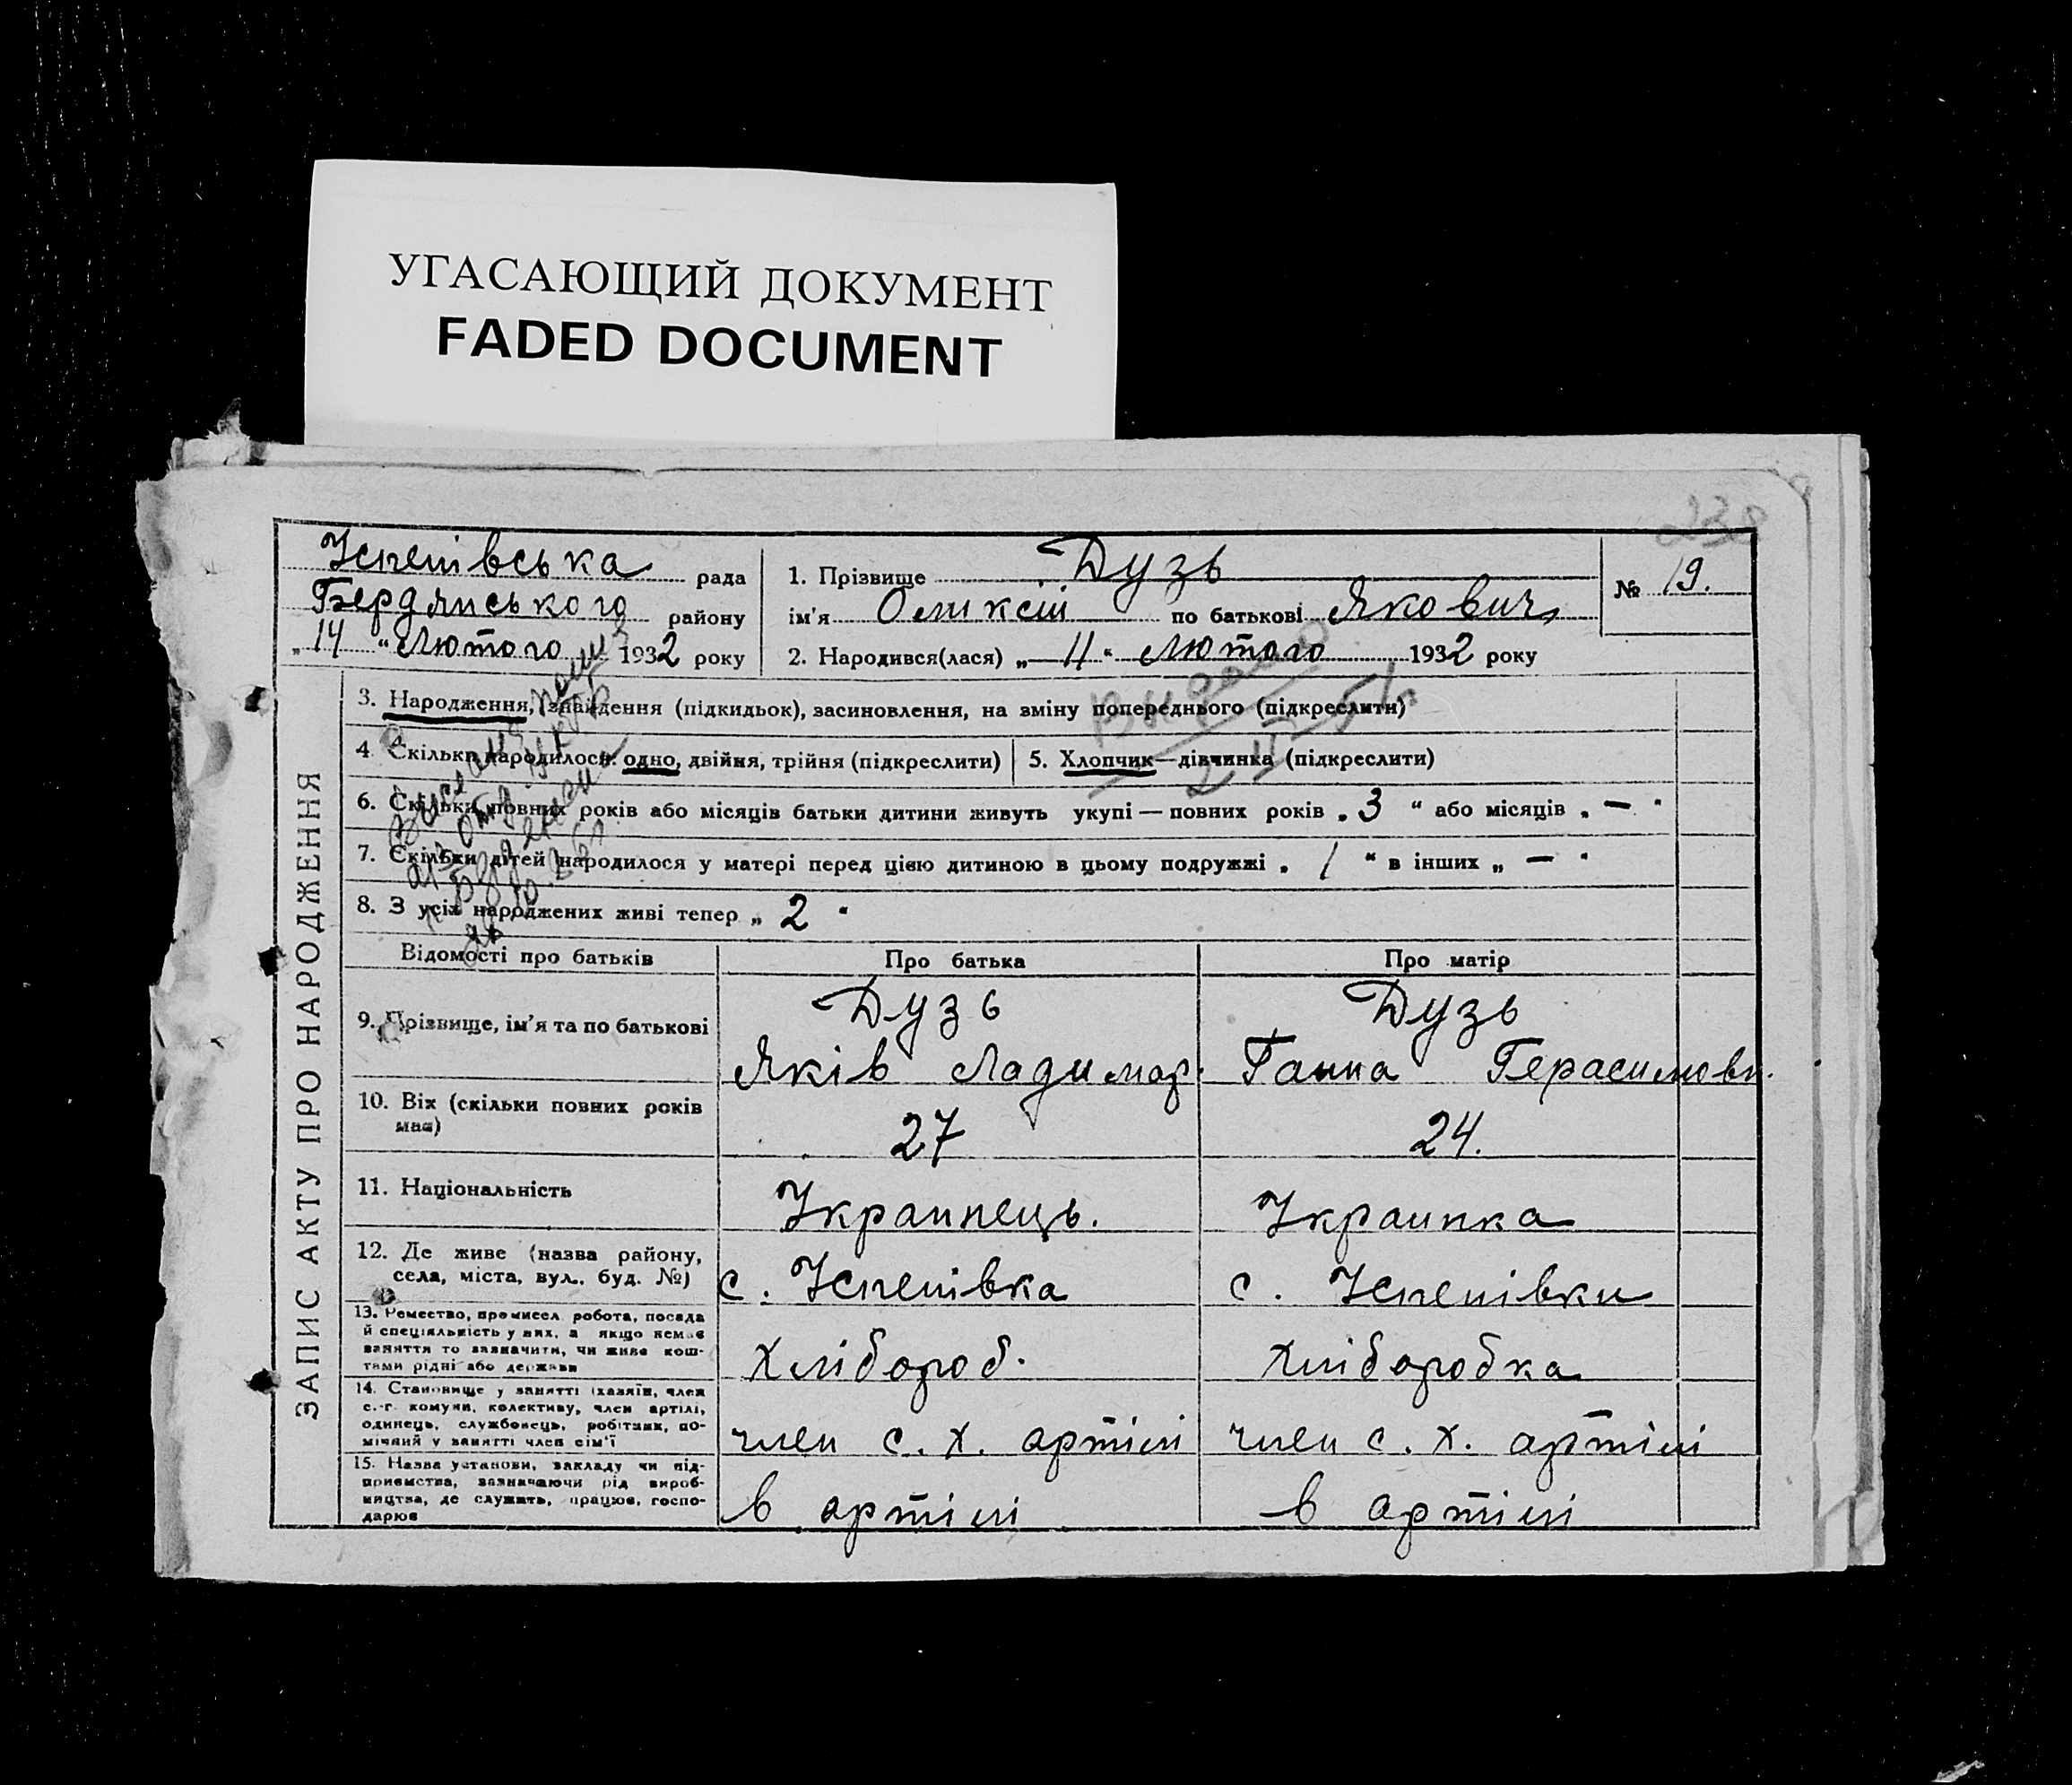 УГАСАЮЩИЙ ДОКУМЕНТ
FADED DOCUMENT
230
Успепівська рада
Бердянського району
„14“ Лютого 1932 року
1. Прізвище Дузь
ім'я Оликсій по батькові Якович
2. Народився(лася) „11“ Лютого 1932 року
№ 19.
ЗАПИС АКТУ ПРО НАРОДЖЕННЯ
3. Народження, знайдення (підкидьок), засиновлення, на зміну попереднього (підкреслити)
Видано
4. Скільки народилося: одно, двійня, трійня (підкреслити)
5. Хлопчик—дівчинка (підкреслити)
6. Скільки повних років або місяців батьки дитини живуть укупі — повних років „3“ або місяців „—“
7. Скільки дітей народилося у матері перед цією дитиною в цьому подружжі „1“ в інших „—“
8. З усіх народжених живі тепер „2“
Відомості про батьків Про батька Про матір
9. Прізвище, ім'я та по батькові
Дузь
Яків Ладимар.
Дузь
Ганна Герасимовн.
10. Вік (скільки повних років
має)
27
24.
11. Національність
Украинець.
Украинка
12. Де живе (назва району,
села, міста, вул., буд. №)
с. Успепівка
с. Успепівки
13. Ремество, промисел, робота, посада
й спеціяльність у них, а якщо немає
заняття то зазначити, чи живе кош-
тами рідні або держави
Хлібороб.
Хліборобка
14. Становище у занятті (хазяїн, член
с.-г. комуни, колективу, член артілі,
одинець, службовець, робітник, по-
мічний у занятті член сім'ї
член с. х. артілі
член с. х. артілі
15. Назва установи, закладу чи під-
приємства, зазначаючи рід вироб-
ництва, де служить, працює, госпо-
дарює
в артілі
в артілі